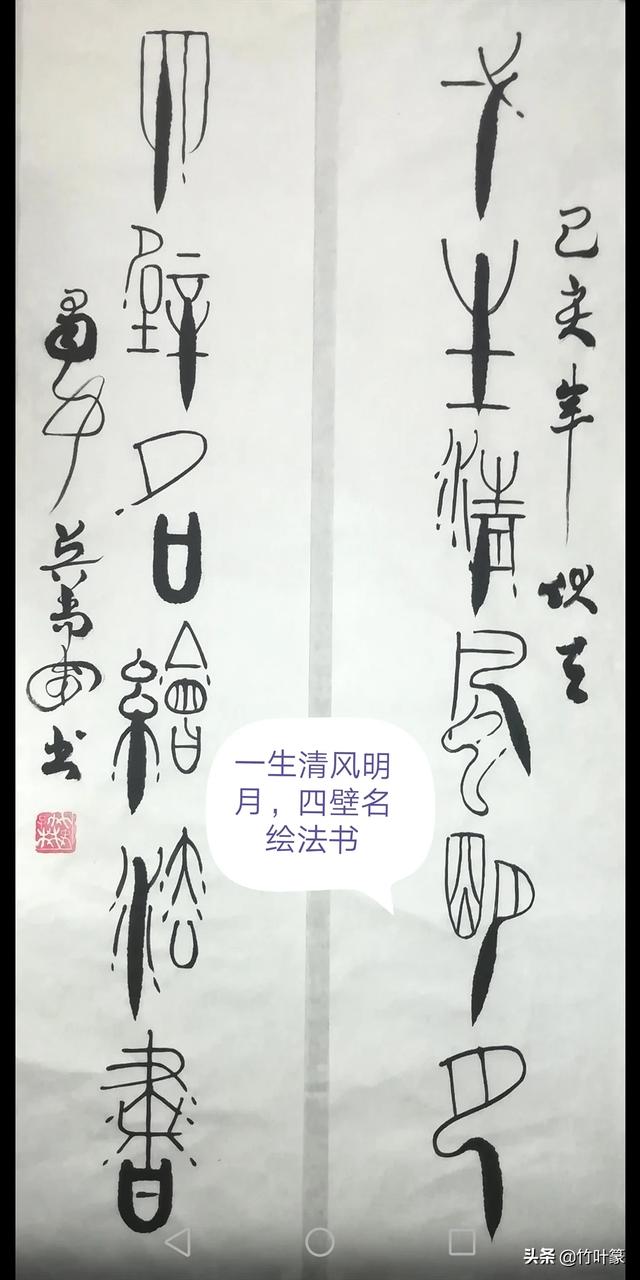 己亥年
一生清風明月
四壁名繪法書
蜀中
书
一生清风明
月，四壁名
绘法书
头条 @竹叶篆